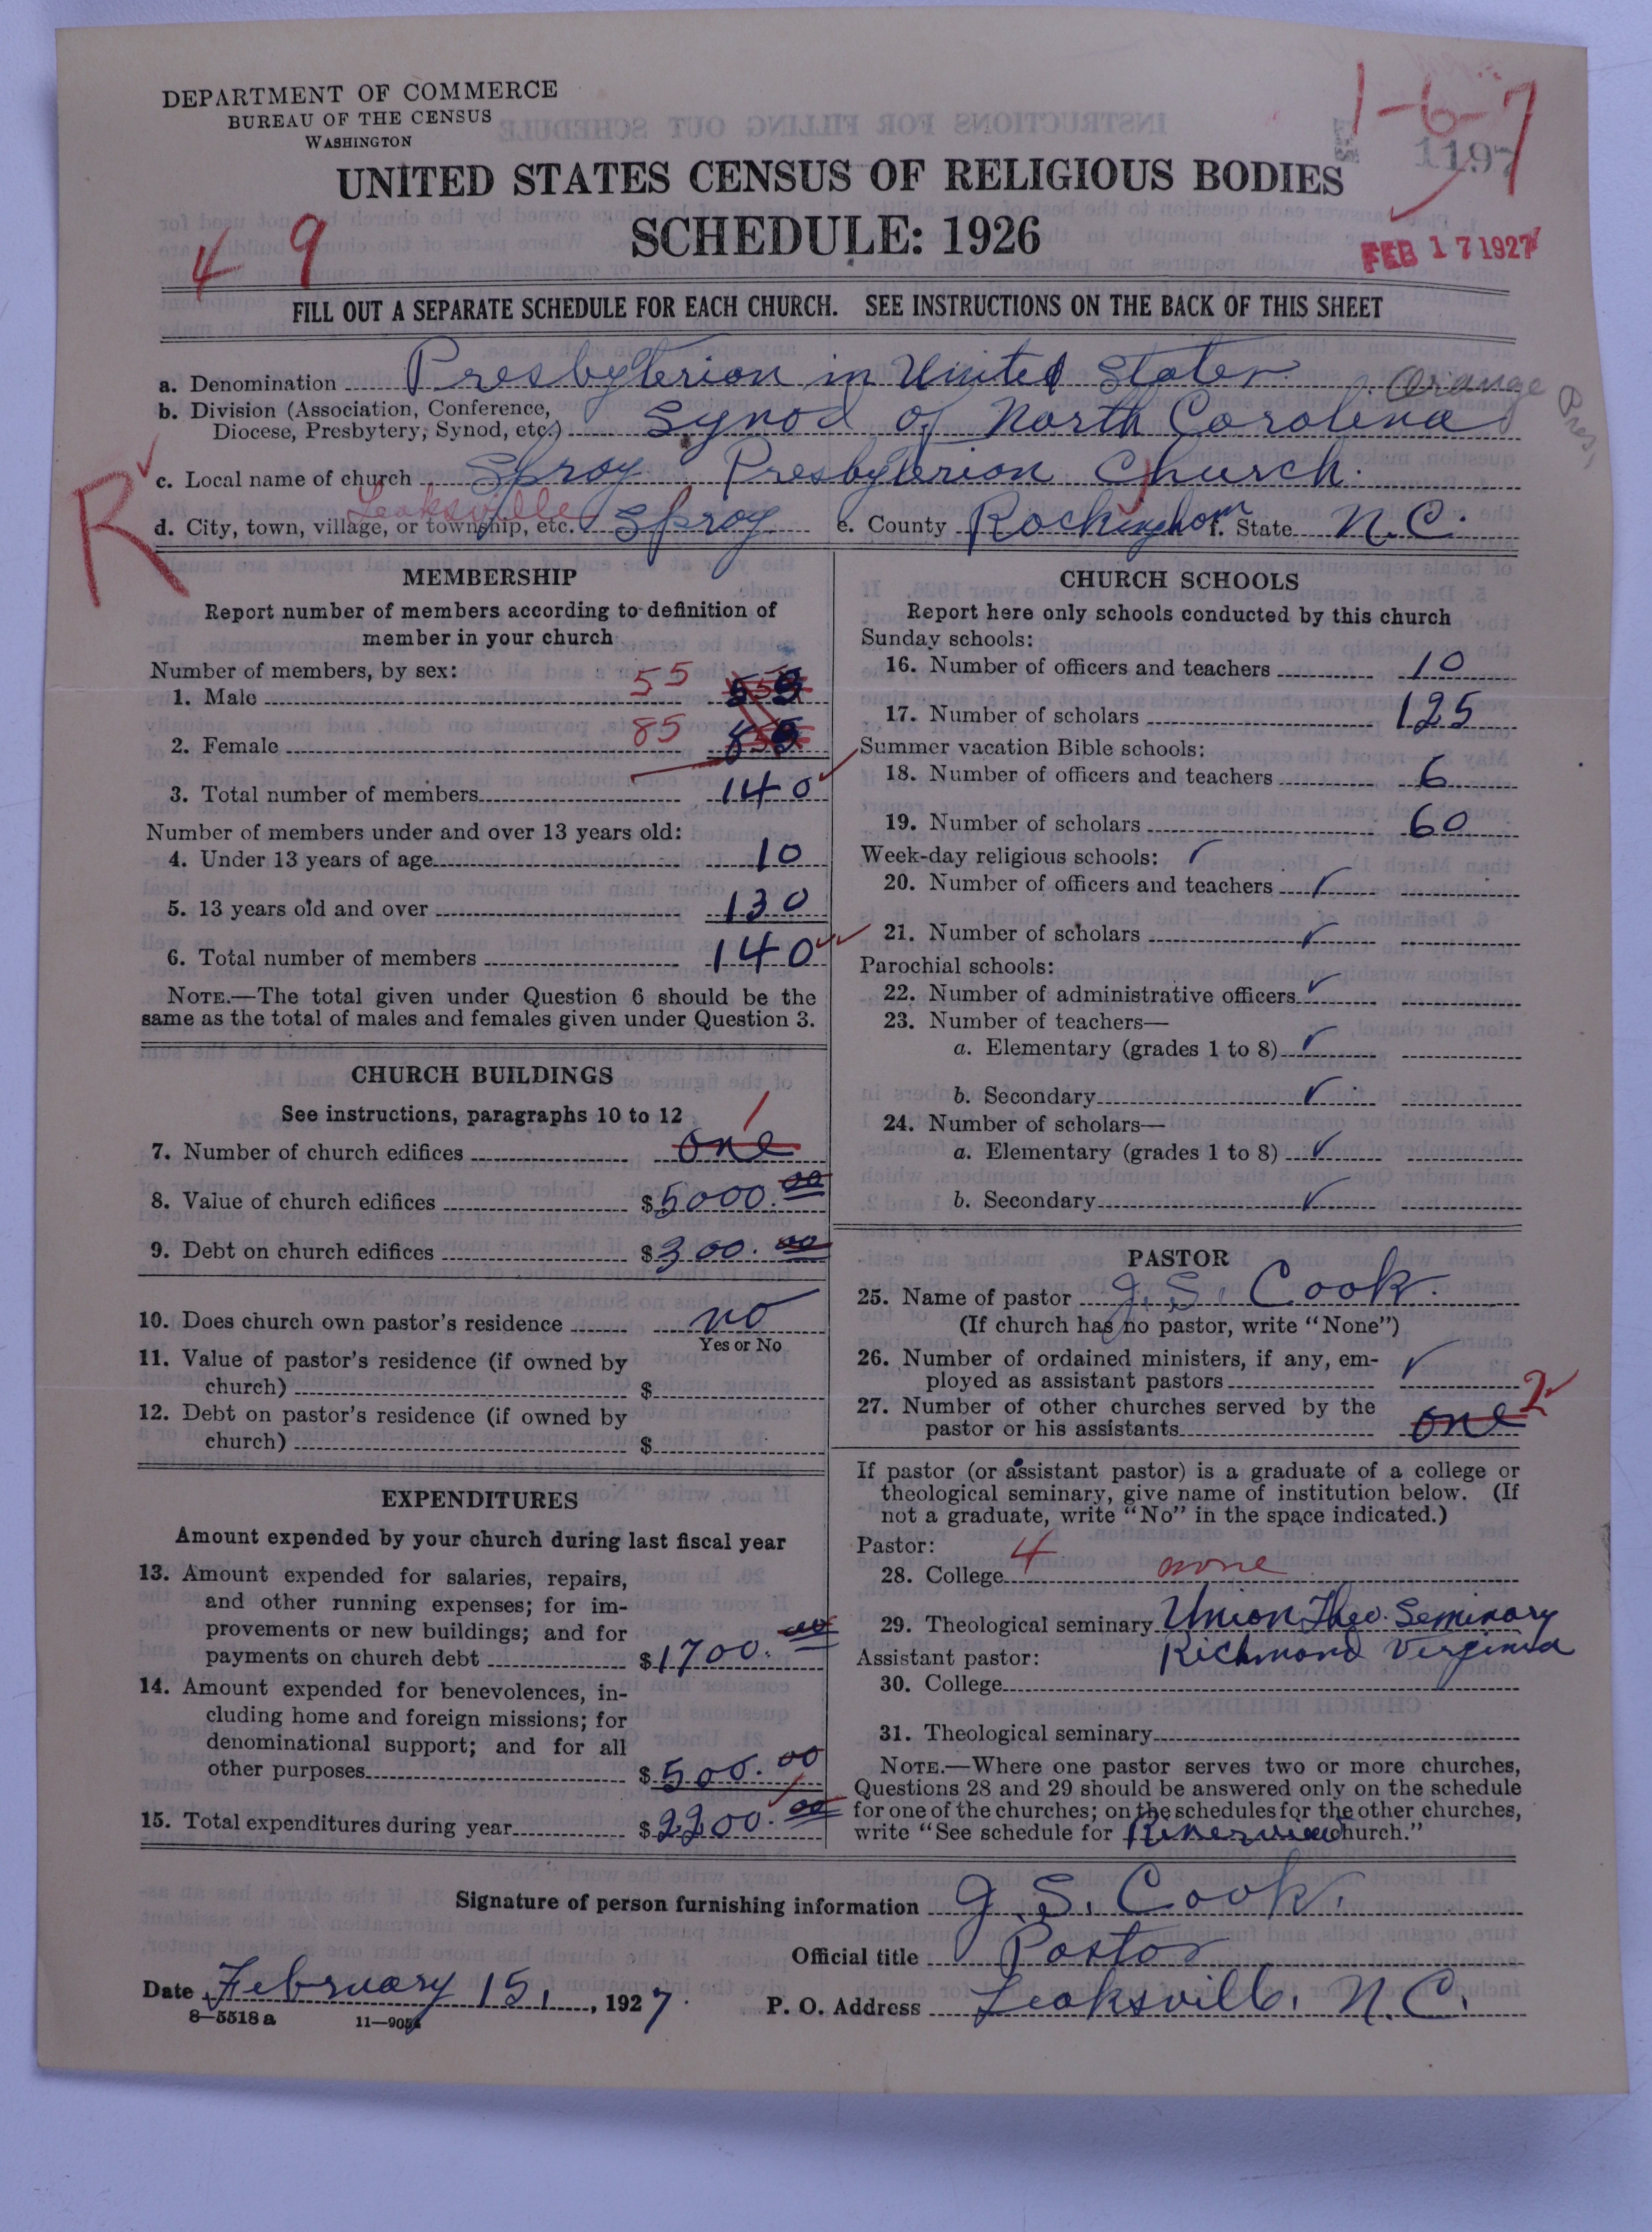 DEPARTMENT OF COMMERCE
BUREAU OF THE CENSUS
WASHINGTON
1-6-7
1197
UNITED STATES CENSUS OF RELIGIOUS BODIES
SCHEDULE: 1926
4 9
FEB 17 1927
FILL OUT A SEPARATE SCHEDULE FOR EACH CHURCH. SEE INSTRUCTIONS ON THE BACK OF THIS SHEET
a. Denomination Presbyterion in United States
Orange Pres,
b. Division (Association, Conference, Diocese, Presbytery, Synod, etc.) Synod of North Carolina
R
c. Local name of church Spray Presbyterion Church.
Leaksville
d. City, town, village, or township, etc. Spray e. County Rockingham f. State N.C.
MEMBERSHIP
Report number of members according to definition of
member in your church
Number of members, by sex:
1. Male 55
2. Female 85
3. Total number of members 140
Number of members under and over 13 years old:
4. Under 13 years of age 10
5. 13 years old and over 130
6. Total number of members 140
NOTE.—The total given under Question 6 should be the
same as the total of males and females given under Question 3.
CHURCH BUILDINGS
See instructions, paragraphs 10 to 12
7. Number of church edifices one 1
8. Value of church edifices $5000.00
9. Debt on church edifices $300.00
10. Does church own pastor's residence no
Yes or No
11. Value of pastor's residence (if owned by
church) $
12. Debt on pastor's residence (if owned by
church) $
EXPENDITURES
Amount expended by your church during last fiscal year
13. Amount expended for salaries, repairs,
and other running expenses; for im-
provements or new buildings; and for
payments on church debt $1700.00
14. Amount expended for benevolences, in-
cluding home and foreign missions; for
denominational support; and for all
other purposes $500.00
15. Total expenditures during year $2200.00
CHURCH SCHOOLS
Report here only schools conducted by this church
Sunday schools:
16. Number of officers and teachers 10
17. Number of scholars 125
Summer vacation Bible schools:
18. Number of officers and teachers 6
19. Number of scholars 60
Week-day religious schools:
20. Number of officers and teachers
21. Number of scholars
Parochial schools:
22. Number of administrative officers
23. Number of teachers—
a. Elementary (grades 1 to 8)
b. Secondary
24. Number of scholars—
a. Elementary (grades 1 to 8)
b. Secondary
PASTOR
25. Name of pastor J. S. Cook.
(If church has no pastor, write "None")
26. Number of ordained ministers, if any, em-
ployed as assistant pastors
27. Number of other churches served by the
pastor or his assistants one 2
If pastor (or assistant pastor) is a graduate of a college or
theological seminary, give name of institution below. (If
not a graduate, write "No" in the space indicated.)
Pastor:
28. College 4 none
29. Theological seminary Union Theo. Seminary
Richmond Virginia
Assistant pastor:
30. College
31. Theological seminary
NOTE.—Where one pastor serves two or more churches,
Questions 28 and 29 should be answered only on the schedule
for one of the churches; on the schedules for the other churches,
write "See schedule for church."
Signature of person furnishing information J. S. Cook.
Official title Pastor
Date February 15, 1927.
P. O. Address Leaksville, N.C.
8—5518 a 11—9054